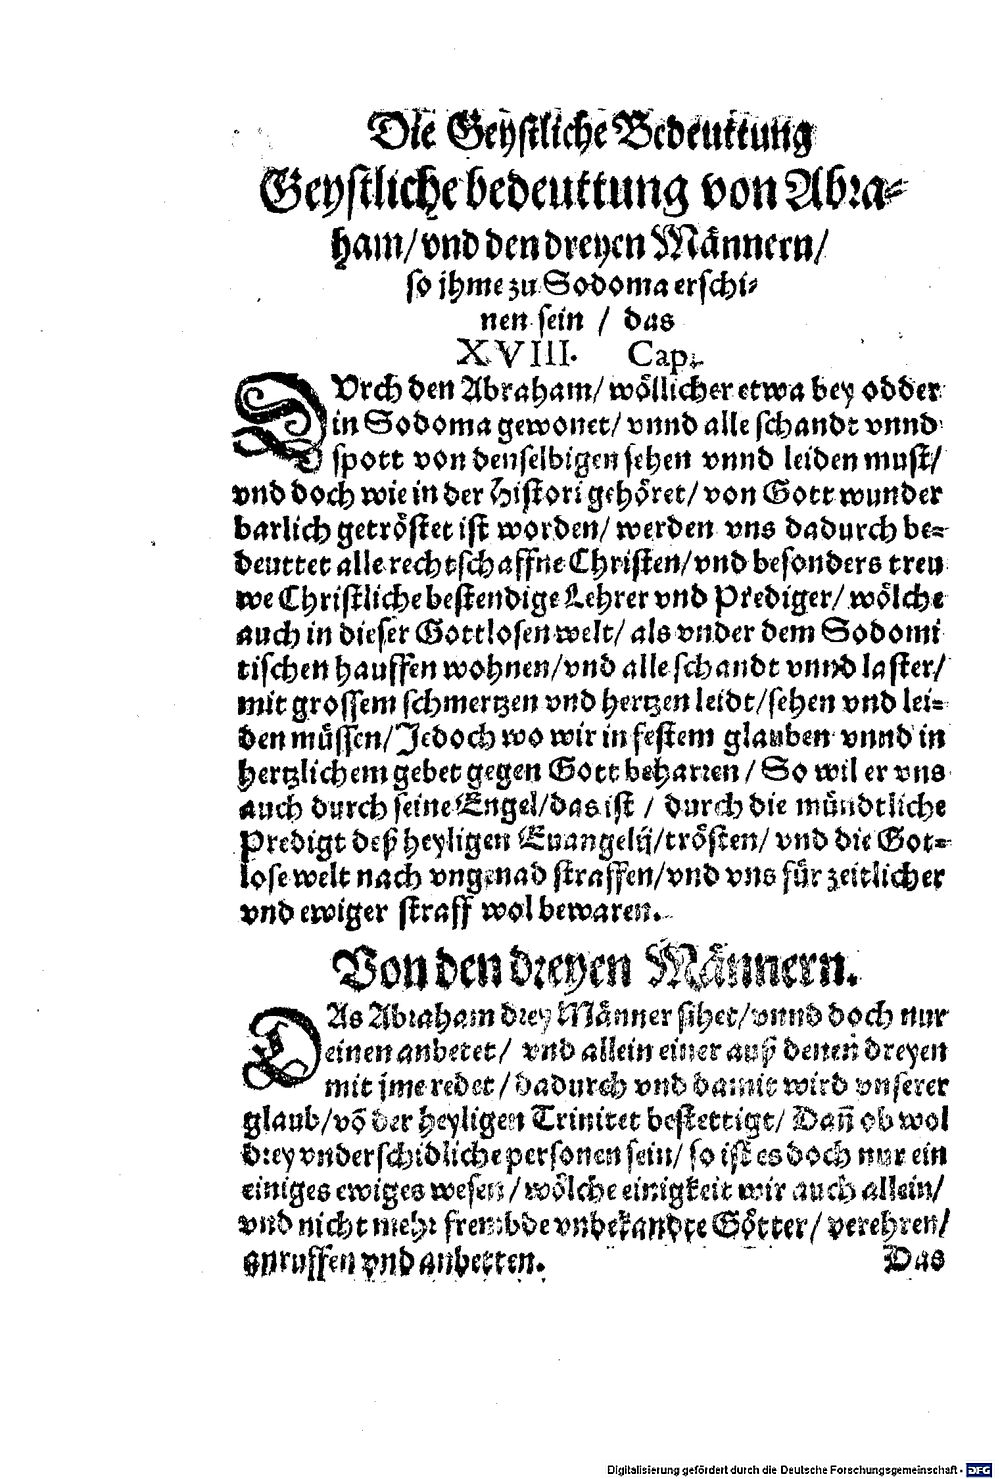 Die Geystliche Bedeuttung
Geystliche bedeuttung von Abra-
ham/ vnd den dreyen Männern/
so jhme zu Sodoma erschi-
nen sein / das
XVIII. Cap.
DVrch den Abraham/ wöllicher etwa bey odder
in Sodoma gewonet/ vnnd alle schandt vnnd
spott von denselbigen sehen vnnd leiden must/
vnd doch wie in der Histori gehöret/ von Gott wunder
barlich getröstet ist worden/ werden vns dadurch be-
deuttet alle rechtschaffne Christen/ vnd besonders treu
we Christliche bestendige Lehrer vnd Prediger/ wölche
auch in dieser Gottlosen welt/ als vnder dem Sodomi
tischen hauffen wohnen/ vnd alle schandt vnnd laster/
mit grossem schmertzen vnd hertzen leidt/ sehen vnd lei-
den müssen/ Jedoch wo wir in festem glauben vnnd in
hertzlichem gebet gegen Gott beharren / So wil er vns
auch durch seine Engel/ das ist / durch die mündtliche
Predigt deß heyligen Euangelij/ trösten/ vnd die Got-
lose welt nach vngenad straffen/ vnd vns für zeitlicher
vnd ewiger straff wol bewaren.
Von den dreyen Männern.
DAs Abraham drey Männer sihet/ vnnd doch nur
einen anbetet/ vnd allein einer auß denen dreyen
mit jme redet / dadurch vnd damit wird vnserer
glaub/ vō der heyligen Trinitet bestettigt/ Dañ ob wol
drey vnderschidliche personen sein/ so ist es doch nur ein
einiges ewiges wesen / wölche einigkeit wir auch allein/
vnd nicht mehr frembde vnbekandte Götter/ verehren/
anruffen vnd anbetten. Das
Digitalisierung gefördert durch die Deutsche Forschungsgemeinschaft - DFG